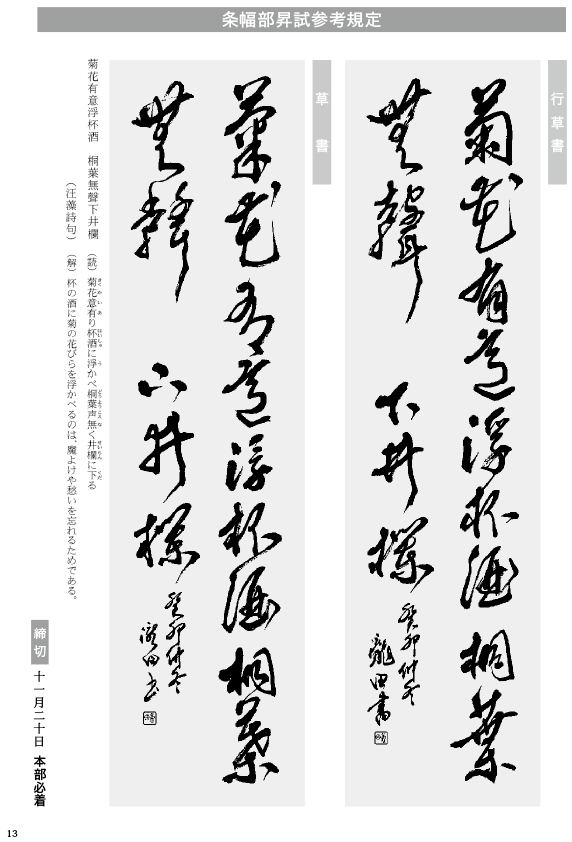 条幅部昇試参考規定
行草書
菊花有意浮杯酒桐葉
無聲下井欄
癸卯仲冬
龍田書
草書
菊花有意浮杯酒桐葉
無聲下井欄
癸卯仲冬
龍田書
菊花有意浮杯酒　桐葉無聲下井欄
（汪藻詩句）
（読）菊花意有り杯酒に浮かべ桐葉声無く井欄に下る
（解）杯の酒に菊の花びらを浮かべるのは、魔よけや愁いを忘れるためである。
締切
十一月二十日　本部必着
13